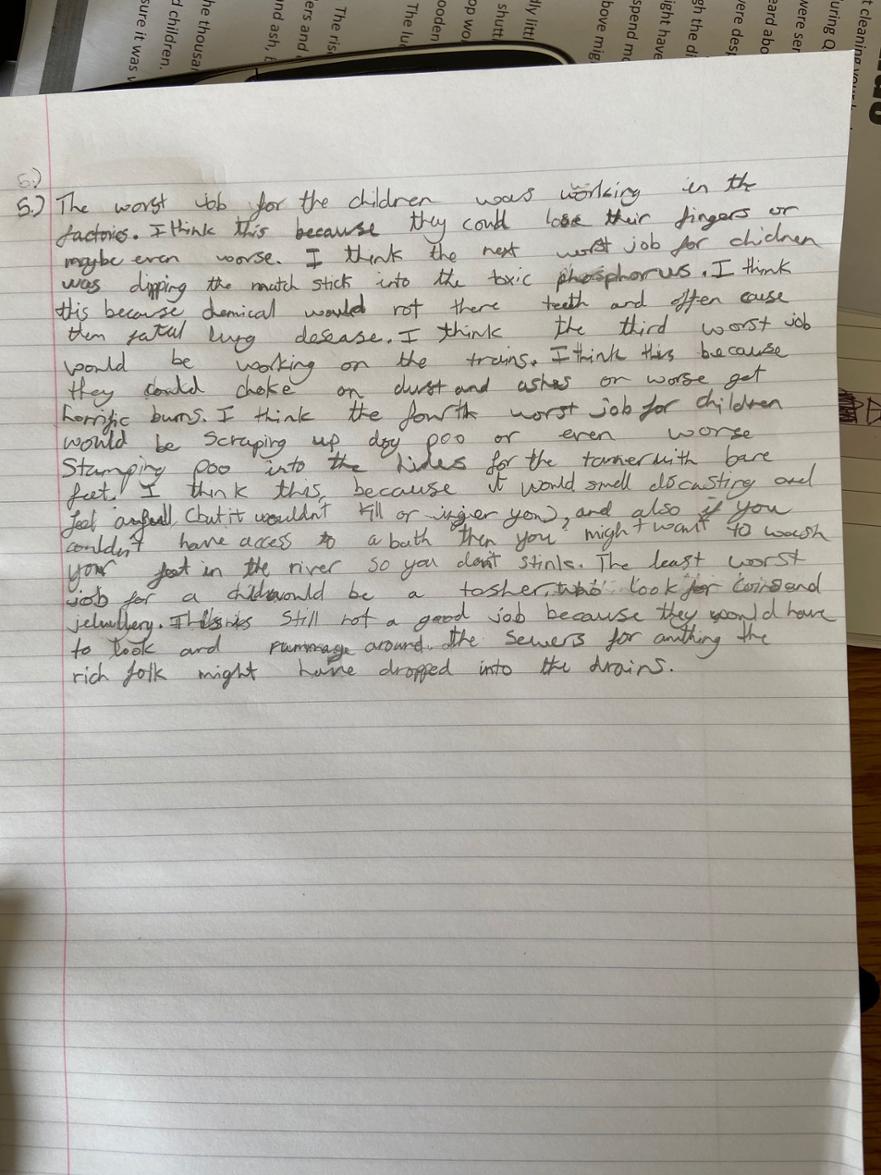 hildren
and ash,
The ris
The lu
ooden
op wo
shutt
dly littl
bove mig
spend m
ight have
gh the di
vere desp
eard abo
were ser
uring Q
d children.
sure it was
he thousan
5.)
5.) The worst job for the children was working in the
factories. I think this because they could lose their fingers or
maybe even worse. I think the next worst job for chidren
was dipping the match stick into the toxic phosphorus. I think
this because chemical would rot there teeth and often cause
them fatal lung desease. I think the third worst job
would be working on the trains. I think this because
they could choke on durst and ashes or worse get
horrific burns. I think the fourth worst job for children
would be scraping up dog poo or even worse
stamping poo into the hides for the tanner with bare
feet. I think this, because it would smell discusting and
feel (but it wouldn't kill or injer you), and also if you
couldn't have access to a bath then you might want to wash
your feet in the river so you don't stink. The least worst
job for a child would be a tosher, who look for coins and
jelwullery. This is still not a good job because they would have
to look and rummage around the sewers for anthing the
rich folk might have dropped into the drains.